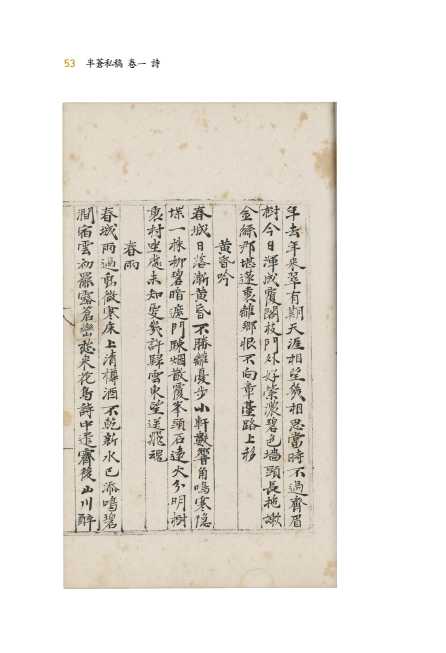 53 半蒼私稿 卷一 詩
年去年來翠有期天涯相望幾相思當時不過齊眉
樹今日渾成覆閣枝門外好縈濃碧色墻頭長拖嫩
金絲那堪蓬裏離鄉恨不向章臺路上移
黃昏吟
春城日落漸黃昏不勝離憂步小軒數聲角鳴寒隱
堞一株柳碧暗遮門 烟散覆峯頭石遠火分明樹
裏村坐處未知更幾許歸雲東望送飛魂
春雨
春城雨過動微寒床上清樽酒不乾新水已添鳴碧
澗宿雲初罷露蒼巒愁來花鳥詩中遣霽後山川醉